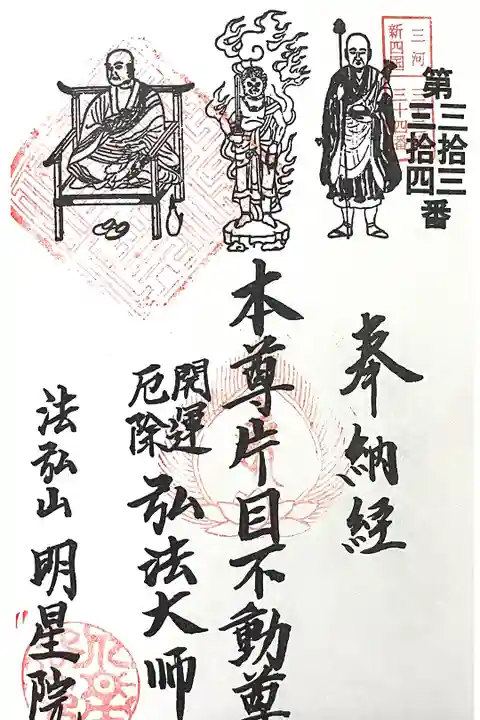 三河
新四国
三十四番
第三拾三
三拾四番
奉納経
本尊片目不動尊
開運
厄除
弘法大師
法弘山
明星院